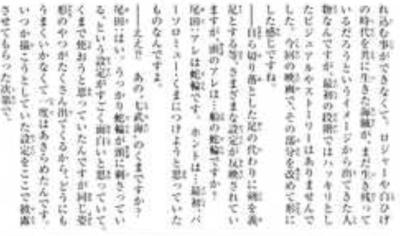 れ込む事ができなくて。ロジャーや白ひげ
の時代を共に生きた海賊が、まだ生き残って
いるだろうというイメージから出てきた人
物なんですが、最初の段階ではハッキリとし
たビジュアルやストーリーはありませんで
した。今回の映画で、その部分を改めて形に
した感じですね。
──自ら切り落とした足の代わりに剣を義
足とする等、さまざまな設定が反映されてい
ますが、頭のアレは…船の舵輪ですか?
尾田:アレは舵輪です。ホントは…最初、バ
ーソロミュー・くまにつけようと思っていた
ものなんですよ。
──ええ!? あの、七武海のくまですか?
尾田:はい。うっかり舵輪が頭に刺さってい
る、という設定がすごく面白いと思っていて。
くまで使おうと思っていたんですが同じ姿
形のやつがたくさん出てくるから、どうにも
うまくいかなくて一度はあきらめたんです。
いつか描こうとしていた設定をここで披露
させてもらった次第で。